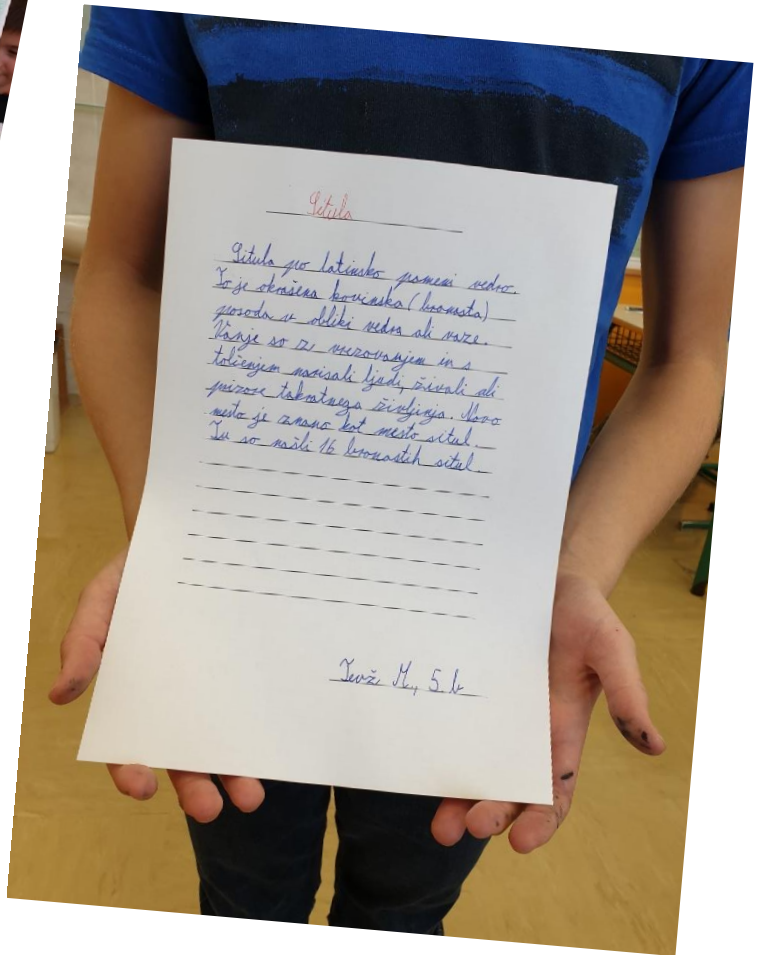 Situla
Situla po latinsko pomeni vedro.
To je okrašena kovinska (bronasta)
posoda v obliki vedra ali vaze.
Vanje so z vrezovanjem in s
tolčenjem narisali ljudi, živali ali
prizore takratnega življinja. Novo
mesto je znano kot mesto situl.
Tu so našli 16 bronastih situl.
Jevž M., 5. b